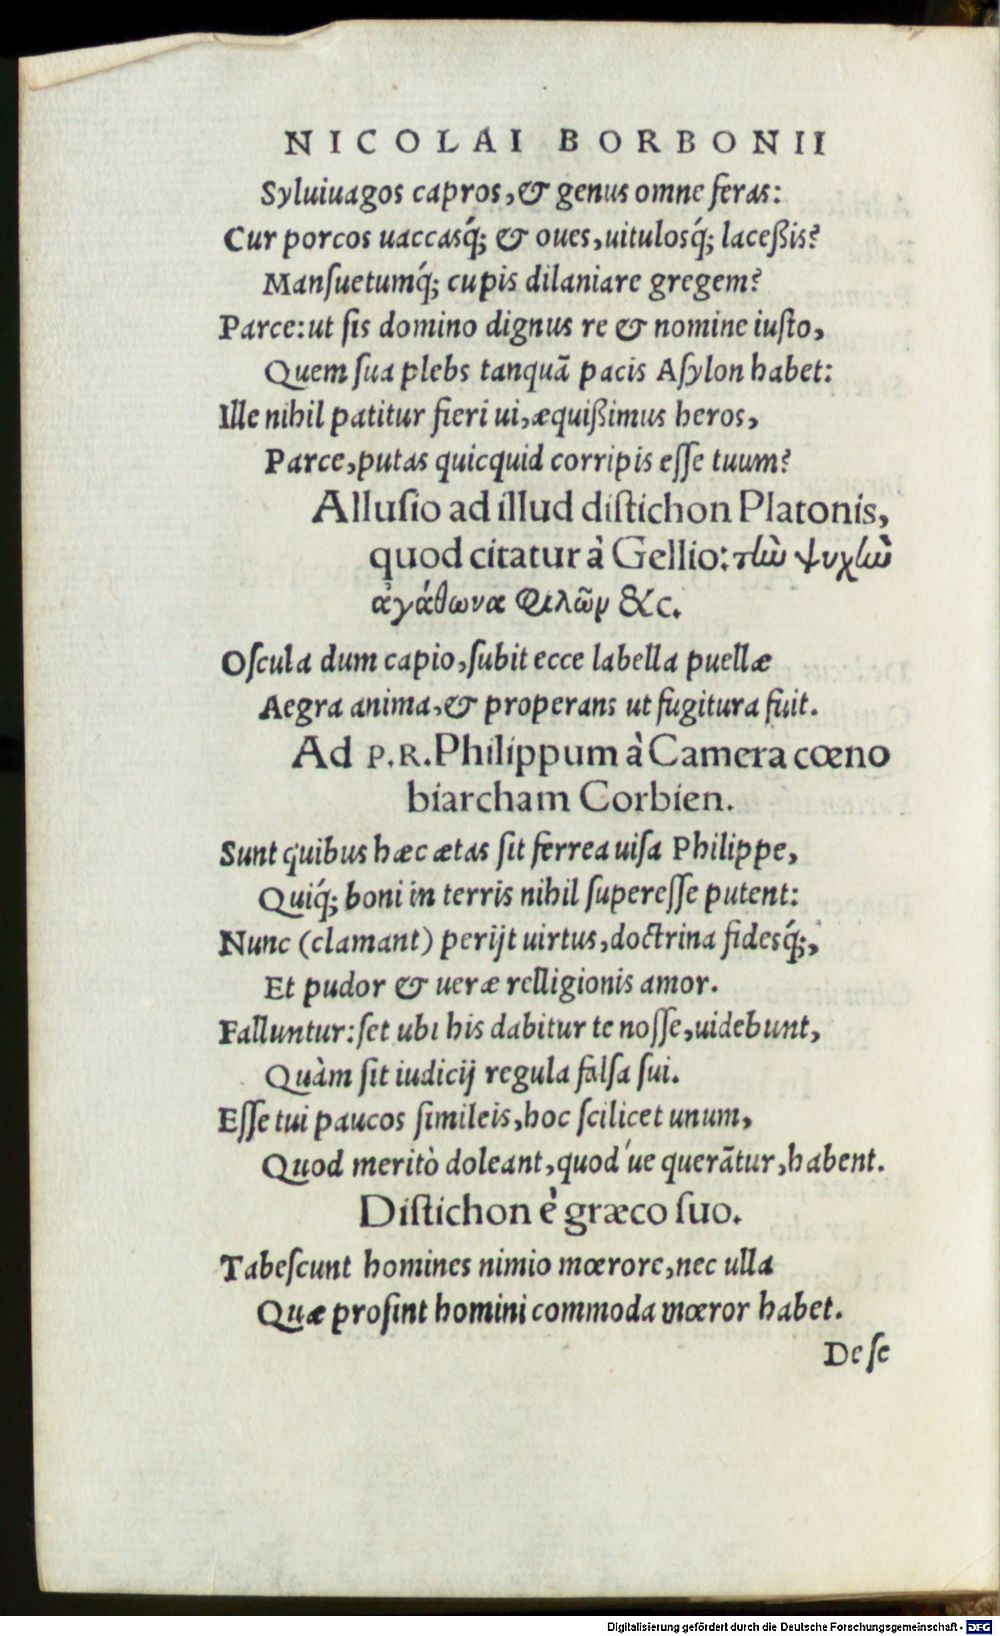 NICOLAI BORBONII
Syluiuagos capros, & genus omne feras:
Cur porcos uaccasq́; & oues, uitulosq́; laceßis?
Manſuetumq́; cupis dilaniare gregem?
Parce: ut ſis domino dignus re & nomine iuſto,
Quem ſua plebs tanquā pacis Aſylon habet:
Ille nihil patitur fieri ui, æquißimus heros,
Parce, putas quicquid corripis eſſe tuum?
Alluſio ad illud diſtichon Platonis,
quod citatur à Gellio: τἰὼ ψυχἰὼ
ἀγάθωνα Φιλῶν &c.
Oſcula dum capio, ſubit ecce labella puellæ
Aegra anima, & properans ut fugitura fuit.
Ad P.R. Philippum à Camera cœno
biarcham Corbien.
Sunt quibus hæc ætas ſit ferrea uiſa Philippe,
Quiq́; boni in terris nihil ſupereſſe putent:
Nunc (clamant) perijt uirtus, doctrina fidesq́;,
Et pudor & ueræ relligionis amor.
Falluntur: ſet ubi his dabitur te noſſe, uidebunt,
Quàm ſit iudicij regula falſa ſui.
Eſſe tui paucos ſimileis, hoc ſcilicet unum,
Quod meritò doleant, quod ́ue querātur, habent.
Diſtichon è græco ſuo.
Tabeſcunt homines nimio mœrore, nec ulla
Quæ proſint homini commoda mœror habet.
De ſe
Digitalisierung gefördert durch die Deutsche Forschungsgemeinschaft - DFG